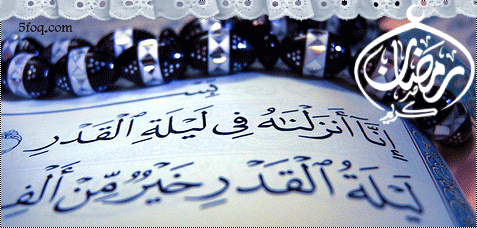 5foq.com
رمضان
كريم
إِنَّآ أَنزَلْنَٰهُ فِى لَيْلَةِ ٱلْقَدْرِ
لَيْلَةُ ٱلْقَدْرِ خَيْرٌ مِّنْ أَلْفِ